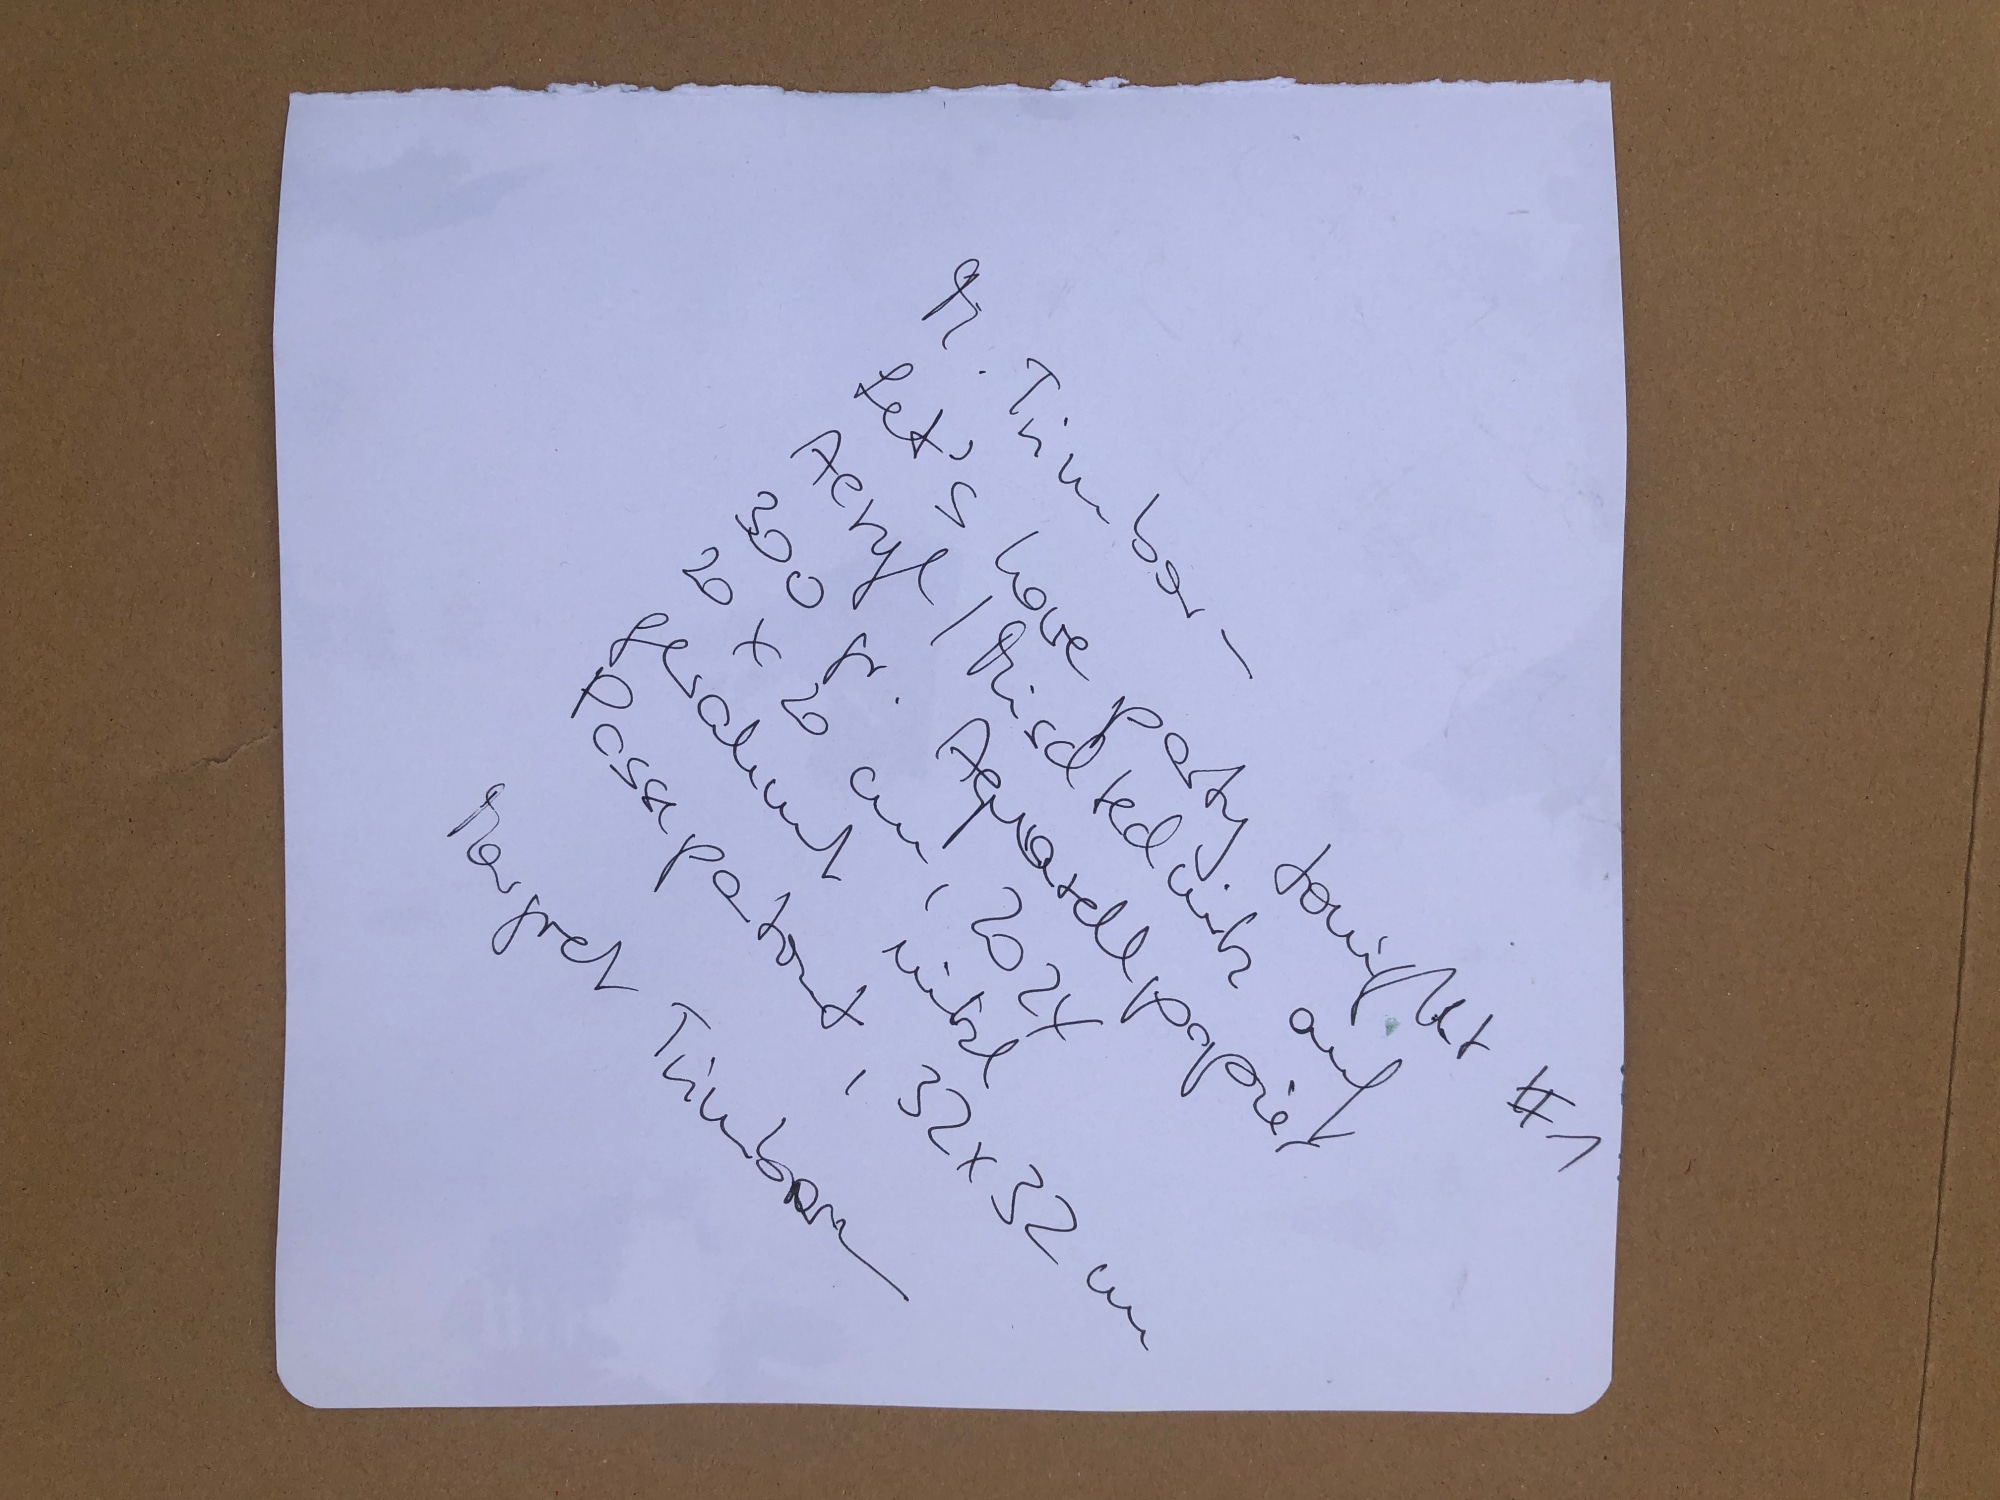 M. Trimborn
Let's have party tonight #1
Acryl / Mischtechnik auf
300 gr. Aquarellpapier
20 x 20 cm, 2024
gesamt mit
Passepartout, 32 x 32 cm
Margret Trimborn